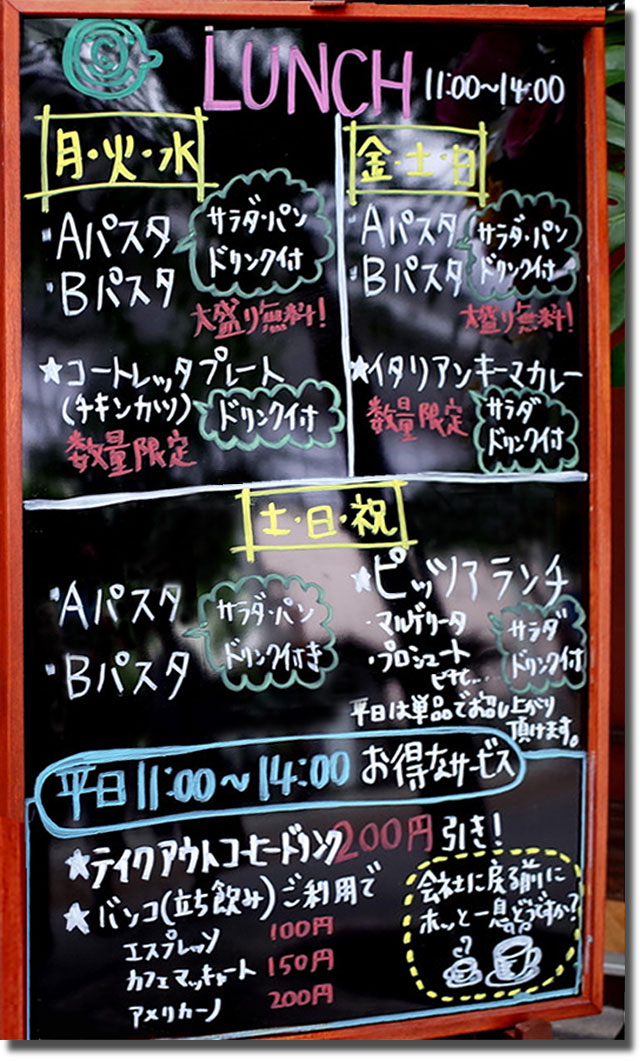 LUNCH 11:00~14:00
月・火・水
・Aパスタ
・Bパスタ
サラダ・パン
ドリンク付
大盛り無料!
★コートレッタプレート
(チキンカツ)
ドリンク付
数量限定
金・土・日
・Aパスタ
・Bパスタ
サラダ・パン
ドリンク付
大盛り無料!
★イタリアンキーマカレー
数量限定
サラダ
ドリンク付
土・日・祝
・Aパスタ
・Bパスタ
サラダ・パン
ドリンク付き
★ピッツアランチ
・マルゲリータ
・プロシュート
ビアetc...
サラダ
ドリンク付
平日は単品でお召し上がり
頂けます。
平日11:00~14:00 お得なサービス
★テイクアウトコーヒードリンク200円引き!
★バンコ(立ち飲み)ご利用で
エスプレッソ 100円
カフェマッキャート 150円
アメリカーノ 200円
会社に戻る前に
ホッと一息どうですか?